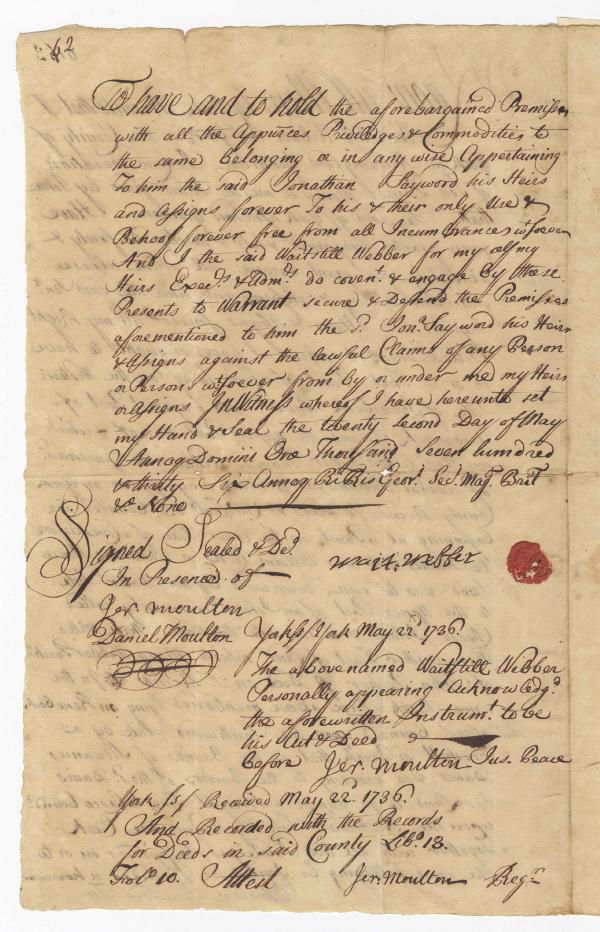 62
To have and to hold the aforebargained Premises
with all the Appurces Priviledges & Commodities to
the same Belonging or in any wise Appertaining
To him the said Jonathan Sayword his Heirs
and Assigns forever To his & their only Use &
Behoof forever free from all Incumbrances wtsoever
And I the said Waitstill Webber for my self my
Heirs Execrs & Admrs do covent & engage by these
Presents to Warrant secure & Defend the Premises
aforementioned to him the sd Jona Sayword his Heirs
& Assigns against the lawful Claims of any Person
or Persons wtsoever from by or under me my Heirs
or Assigns In Witness whereof I have hereunto set
my Hand & Seal the twenty second Day of May
Annoq Domini One Thousand Seven hundred
& thirty Six Annoq Ri Ris Geori Secd Mag Brit
&c None
Signed Sealed & Ded
In Presence of
Wait. Webber
Jer. Moulton
Daniel Moulton
York ss/ York May 22d 1736.
The abovenamed Waitstill Webber
Personally appearing Acknowledgd
the aforewritten Instrumt to be
his Act & Deed
Before Jer. Moulton Jus. Peace
York ss/ Received May 22d 1736.
And Recorded with the Records
for Deeds in said County Libo 18.
Folo 10. Attest Jer. Moulton Regr